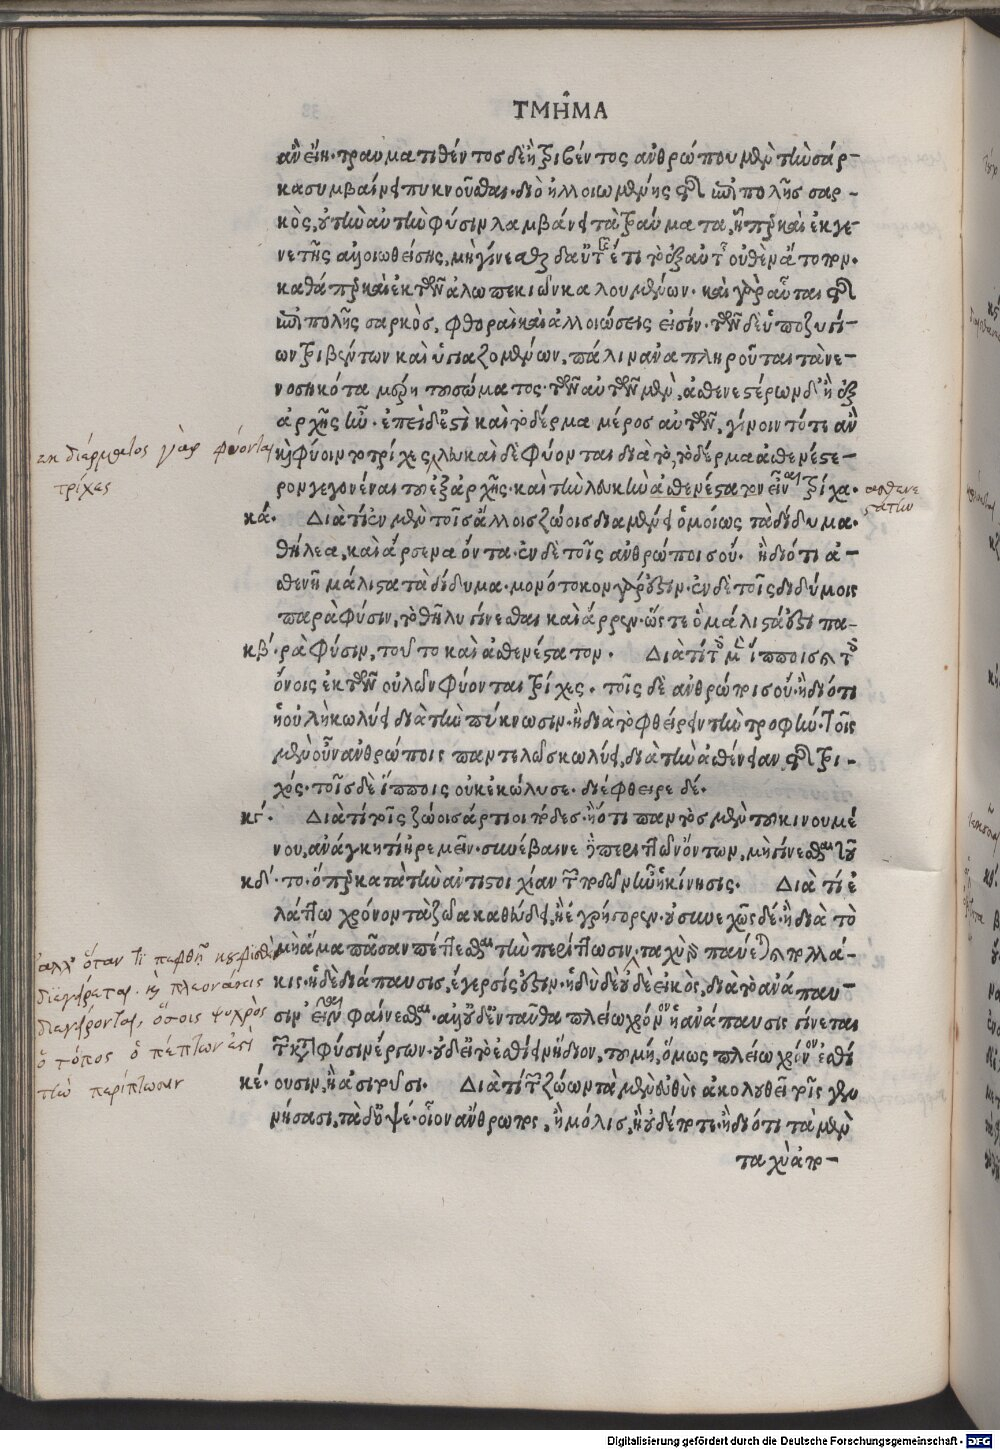 ΤΜΗ͂ΜΑ
ἂν εἴη· τραυματισθέντος δὲ ἢ τριβέντος ἀνθρώπου μὲν τὴν σάρ-
κα συμβαίνει πυκνοῦσθαι· διὸ ἠλλοιωμένης τῆς ἐπιπολῆς σαρ-
κὸς, οὐ τὴν αὐτὴν φύσιν λαμβάνει τὰ τραύματα, ἥπερ καὶ ἐκ γε-
νετῆς ἀλλοιωθείσης, μὴ γίνεσθαι ἔτι τὸ ἐξ αὐτῆς οὐθὲν ἄτοπον·
καθάπερ καὶ ἐκ τῶν ἀλωπεκιῶν καλουμένων· καὶ γὰρ αὗται τῆς
ἐπιπολῆς σαρκὸς, φθοραὶ καὶ ἀλλοιώσεις εἰσίν· τῶν δὲ ὑποζυγί-
ων τριβέντων καὶ ὑγιαζομένων, πάλιν ἀναπληροῦται τὰ νε-
νοσηκότα μέρη τοῦ σώματος· τῶν αὐτῶν μὲν, ἀσθενεστέρων δ' ἢ ἐξ
ἀρχῆς ἦν· ἐπεὶ δέ ἐστι καὶ τὸ δέρμα μέρος αὐτῶν, γίνοιντο τότε ἂν
καὶ φύοιντο τρίχες, λευκαὶ δὲ φύονται διὰ τὸ, τὸ δέρμα ἀσθενέστε-
ρον γεγονέναι τοῦ ἐξ ἀρχῆς· καὶ τὴν λευκὴν ἀσθενέστατον εἶναι τρίχα·
κα΄. Διὰ τί ἐν μὲν τοῖς ἄλλοις ζώοις διαμένει ὁμοίως τὰ δίδυμα·
θήλεα, καὶ ἄρσενα ὄντα· ἐν δὲ τοῖς ἀνθρώποις οὔ· ἢ διότι ἀ-
σθενῆ μάλιστα τὰ δίδυμα· μονότοκον γάρ ἐστιν· ἐν δὲ τοῖς διδύμοις
παρὰ φύσιν, τὸ θῆλυ γίνεσθαι καὶ ἄρρεν· ὥστε ὃ μάλιστά ἐστι πα-
κβ΄. ρὰ φύσιν, τοῦτο καὶ ἀσθενέστατον. Διὰ τί τοῖς μὲν ἵπποις καὶ τοῖς
ὄνοις ἐκ τῶν οὐλῶν φύονται τρίχες. τοῖς δὲ ἀνθρώποις οὔ· ἢ διότι
ἡ οὐλὴ κωλύει διὰ τὴν πύκνωσιν· ἢ διὰ τὸ φθείρειν τὴν τροφήν· τοῖς
μὲν οὖν ἀνθρώποις παντελῶς κωλύει, διὰ τὴν ἀσθένειαν τῆς τρι-
χός· τοῖς δὲ ἵπποις οὐκ ἐκώλυσε· διέφθειρε δέ.
κγ΄. Διὰ τί τοῖς ζώοις ἄρτιοι πόδες· ἢ ὅτι παντὸς μὲν τοῦ κινουμέ
νου, ἀνάγκη τι ἠρεμεῖν· συνέβαινε περιττῶν ὄντων, μὴ γίνεσθαι τοῦ
κδ΄. το· ὅπερ κατὰ τὴν ἀντιστοιχίαν τῶν ποδῶν ἦν ἡ κίνησις. Διὰ τί ἐ
λάττω χρόνον τὰ ζῶα καθεύδει, ἢ ἐγρήγορεν· οὐ συνεχῶς δέ· ἢ διὰ τὸ
μὴ ἅμα πᾶσαν πέττεσθαι τὴν περίττωσιν, ταχὺ παύεται πολλά-
κις· ἡ δὲ διάπαυσις, ἔγερσίς ἐστιν· ἡδὺ δὲ οὐδὲ εἰκὸς, διὰ τὸ ἀνάπαυ-
σιν εἶναι φαίνεσθαι· ἀλλ' οὐδ' ἐνταῦθα πλείω χρόνον ἡ ἀνάπαυσις γίνεται
τῶν κατὰ φύσιν ἔργων· οὐδ' εἰ τὸ ἐσθίειν ἥδιον, τοῦ μή, ὅμως πλείω χρόνον ἐσθί
κε΄. ουσιν, ἢ ἀσιτοῦσι. Διὰ τί τῶν ζώων τὰ μὲν εὐθὺς ἀκολουθεῖ τοῖς γεν
νήσασι, τὰ δ' ὀψέ· οἷον ἄνθρωπος, ἢ μόλις, ἢ οὐδέποτε· ἢ διότι τὰ μὲν
ταχὺ ἀπο-
ἐκ δέρματος γὰρ φύονται
τρίχες
ἀσθενε
στάτην
ἀλλ' ὅταν τι πεφθῇ κουφισθὲν
διεγείρεται. καὶ πλεονάκις
διεγείρονται, ὅσοις ψυχρὸς
ὁ τόπος ὁ πέπτων ἐστὶ
τὴν περίττωσιν
Digitalisierung gefördert durch die Deutsche Forschungsgemeinschaft - DFG